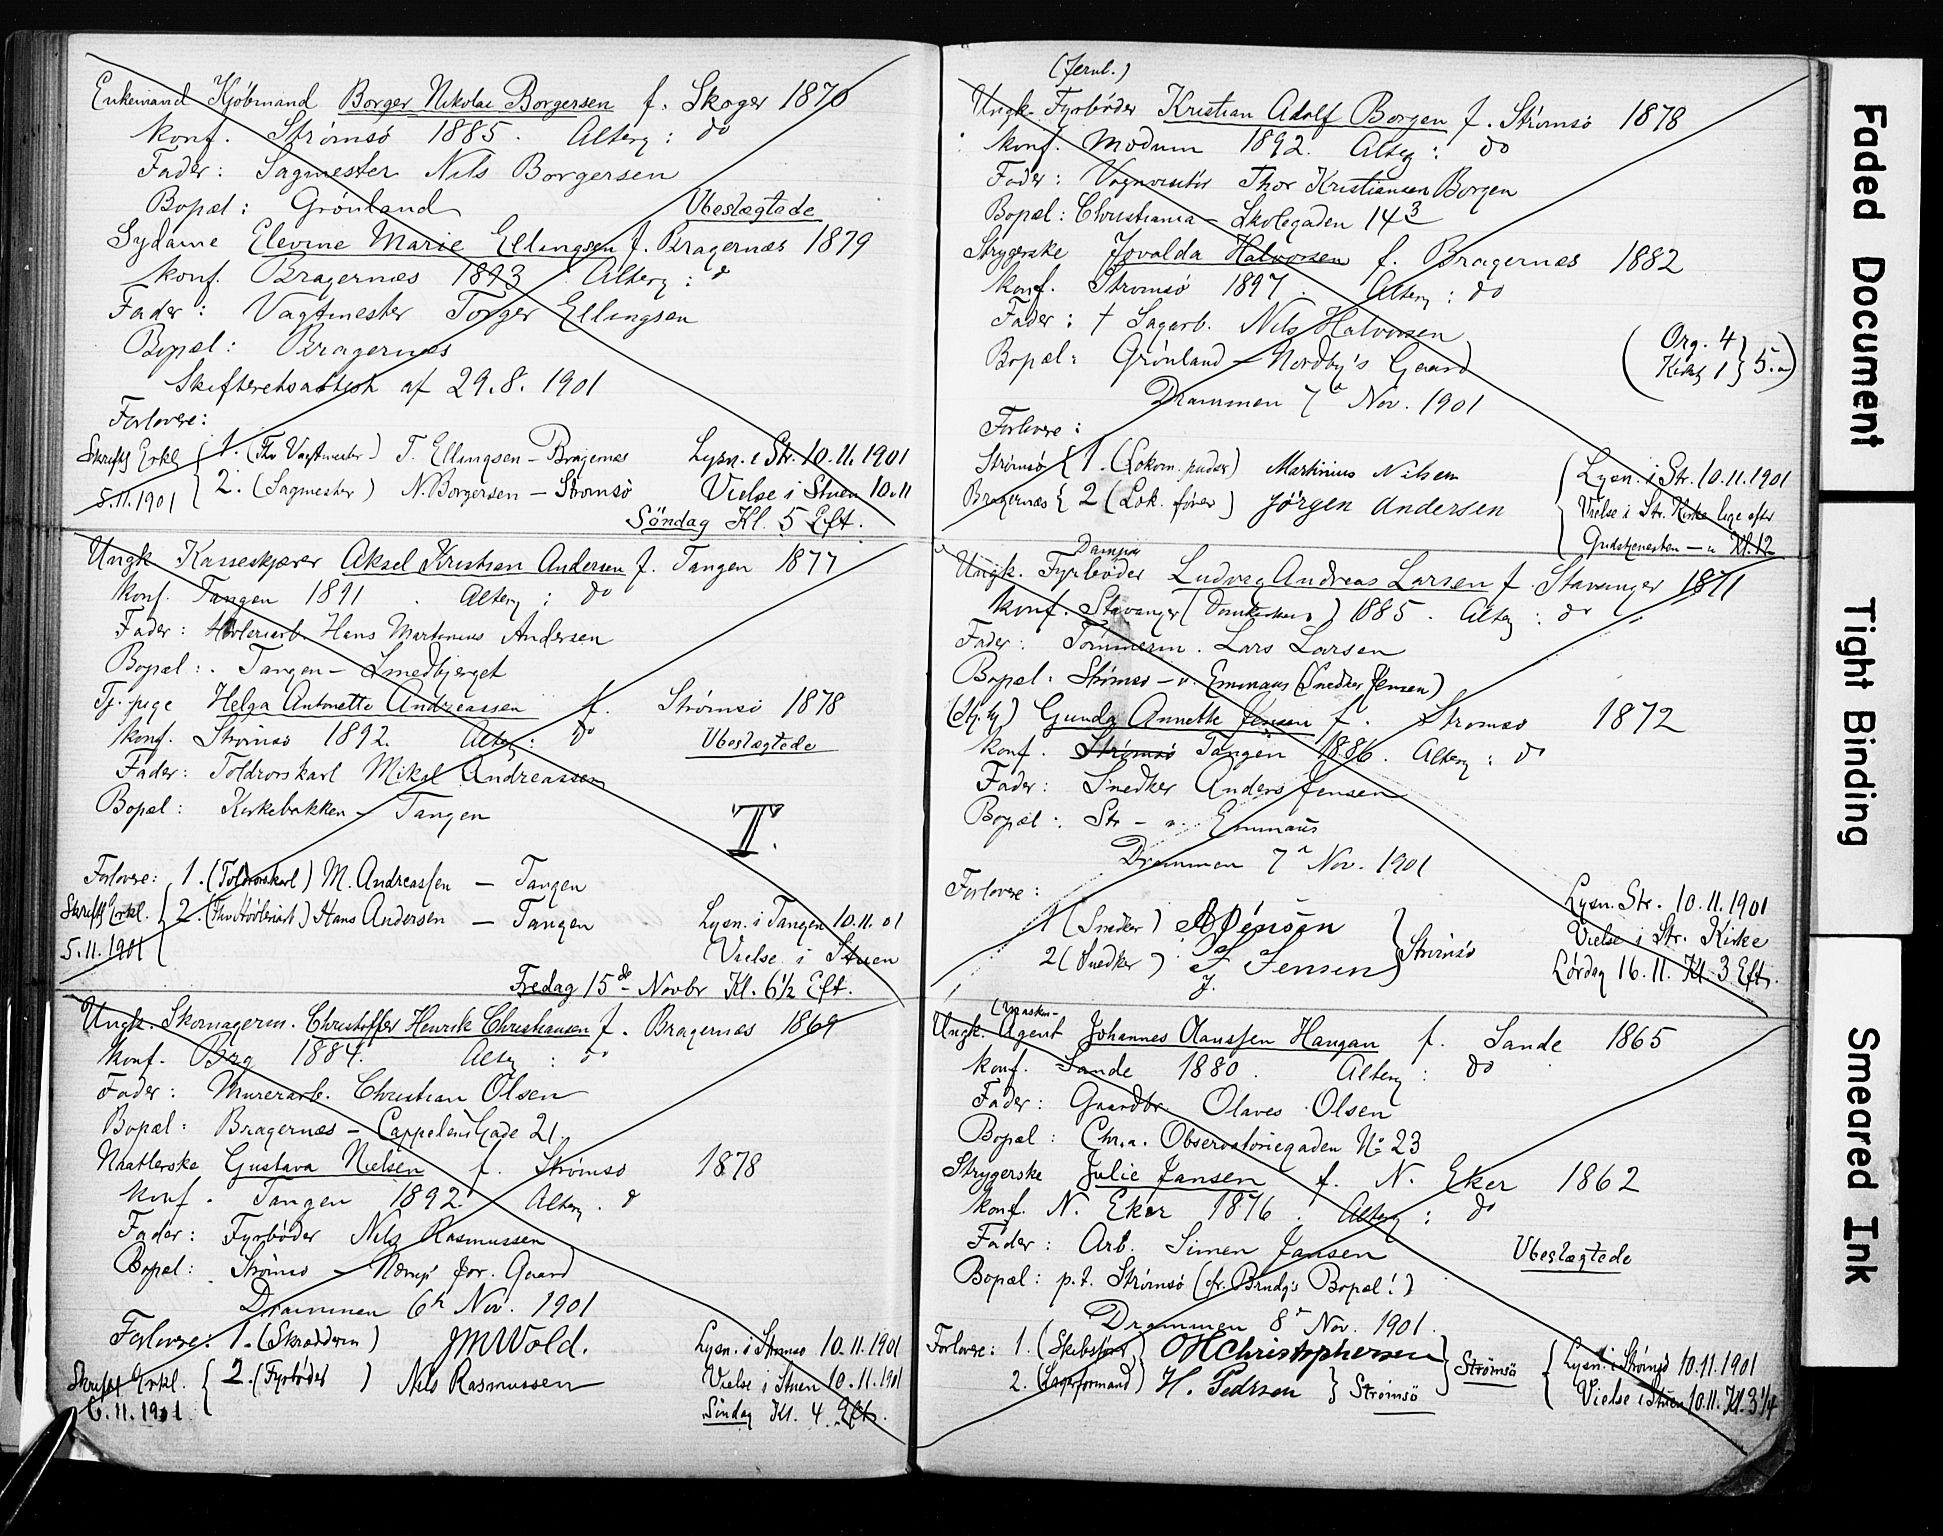 Enkemand Kjøbmand Borger Nikolai Borgersen f. Skoger 1870
konf. Strømsø 1885. Alterg: do
Fader: Sagmester Nils Borgersen
Bopæl: Grønland Ubeslægtede
Sydame Elevine Marie Ellingsen f. Bragernæs 1879
konf. Bragernæs 1893 Alterg: do
Fader: Vagtmester Torger Ellingsen
Bopæl: Bragernæs
Skifteretsattest af 29.8.1901
Forlovere:
Skriftl Erkl. 1. (Fhv Vagtmester) T. Ellingsen – Bragernæs Lysn. i Str. 10.11.1901
5.11.1901 2. (Sagmester) N. Borgersen – Strømsø Vielse i Stuen 10.11
Søndag Kl. 5 Eft.
Ungk. Kasseskjærer Aksel Kristian Andersen f. Tangen 1877
konf. Tangen 1891 Alterg: do
Fader: Høvleriarb. Hans Martinius Andersen
Bopæl: Tangen – Smedbjerget
Tj. pige Helga Antonette Andreassen f. Strømsø 1878
konf. Strømsø 1892. Alterg: do Ubeslægtede
Fader: Toldrorskarl Mikal Andreassen
Bopæl: Kirkebakken – Tangen
T.
Forlovere: 1. (Toldrorskarl) M. Andreassen – Tangen
Skriftl Erkl. 2. (Fhv Høvleriarb) Hans Andersen – Tangen Lysn. i Tangen 10.11.01
5.11.1901 Vielse i Stuen
Fredag 15de Novbr Kl. 6½ Eft.
Ungk. Skomagersv. Christoffer Henrik Christiansen f. Bragernæs 1869
konf. Brg 1884. Alterg: do
Fader: Murerarb. Christian Olsen
Bopæl: Bragernæs – Cappelens Gade 21.
Naatlerske Gustava Nielsen f. Strømsø 1878
konf. Tangen 1892. Alterg. do
Fader: Fyrbøder Nils Rasmussen
Bopæl: Strømsø – Gaard
Drammen 6te Nov. 1901
Forlovere: 1. (Skræddersv) JMWold. Lysn. i Strømsø 10.11.1901
Skriftl Erkl. 2. (Fyrbøder) Nils Rasmussen Vielse i Stuen 10.11.1901
6.11.1901 Søndag Kl. 4 Eft.
(Jernb.)
Ungk. Fyrbøder Kristian Adolf Borgen f. Strømsø 1878
konf. Modum 1892. Alterg: do
Fader: Vognvisitør Thor Kristiansen Borgen
Bopæl: Christiania – Skolegaden 14 3
Strygerske Jovalda Halvorsen f. Bragernæs 1882
konf. Strømsø 1897. Alterg: do
Fader: † Sagarb. Nils Halvorsen
Bopæl: Grønland – Nordby's Gaard (Org. 4 Kirkeg 1 } 5.-)
Drammen 7de Nov. 1901
Forlovere:
Strømsø { 1. (Lokom. pudser) Martinius Nilsen Lysn. i Str. 10.11.1901
Bragernæs { 2 (Lok. fører) Jørgen Andersen Vielse i Str. Kirke lige efter
Gudstjenesten – Kl. 12
Damps.
Ungk. Fyrbøder Ludvig Andreas Larsen f. Stavanger 1871
konf. Stavanger (Domkirken) 1885. Alterg: do
Fader: Tømmerm. Lars Larsen
Bopæl: Strømsø – v. Emmaus (Snedker Jensen)
Gunda Annette Jensen f. Strømsø 1872
konf. Strømsø Tangen 1886. Alterg: do
Fader: Snedker Anders Jensen
Bopæl: Str – v. Emmaus
Drammen 7de Nov. 1901
Forlovere: Lysn. Str. 10.11.1901
1 (Snedker) A Jensen Vielse i Str. Kirke
2 (Snedker) J. Jensen } Strømsø Lørdag 16.11. Kl. 3 Eft.
J.
(Maskin-
Ungk. Agent Johannes Olaussen Haugan f. Sande 1865
konf. Sande 1880. Alterg: do
Fader: Gaardbr. Olaves Olsen
Bopæl: Chr.a. Observatoriegaden No 23
Strygerske Julie Jansen f. N. Eker 1862
konf. N. Eker 1876. Alterg: do
Fader: Arb. Simen Jansen Ubeslægtede
Bopæl: p.t. Strømsø (fr. Brudg's Bopæl!)
Drammen 8de Nov. 1901.
Forlovere: 1. (Skibsfører) OHChristophersen Strømsø Lysn. i Strømsø 10.11.1901
2. (Lagerformand) H. Pedersen } Strømsø Vielse i Stuen 10.11. Kl. 3¼
Faded Document
Tight Binding
Smeared Ink